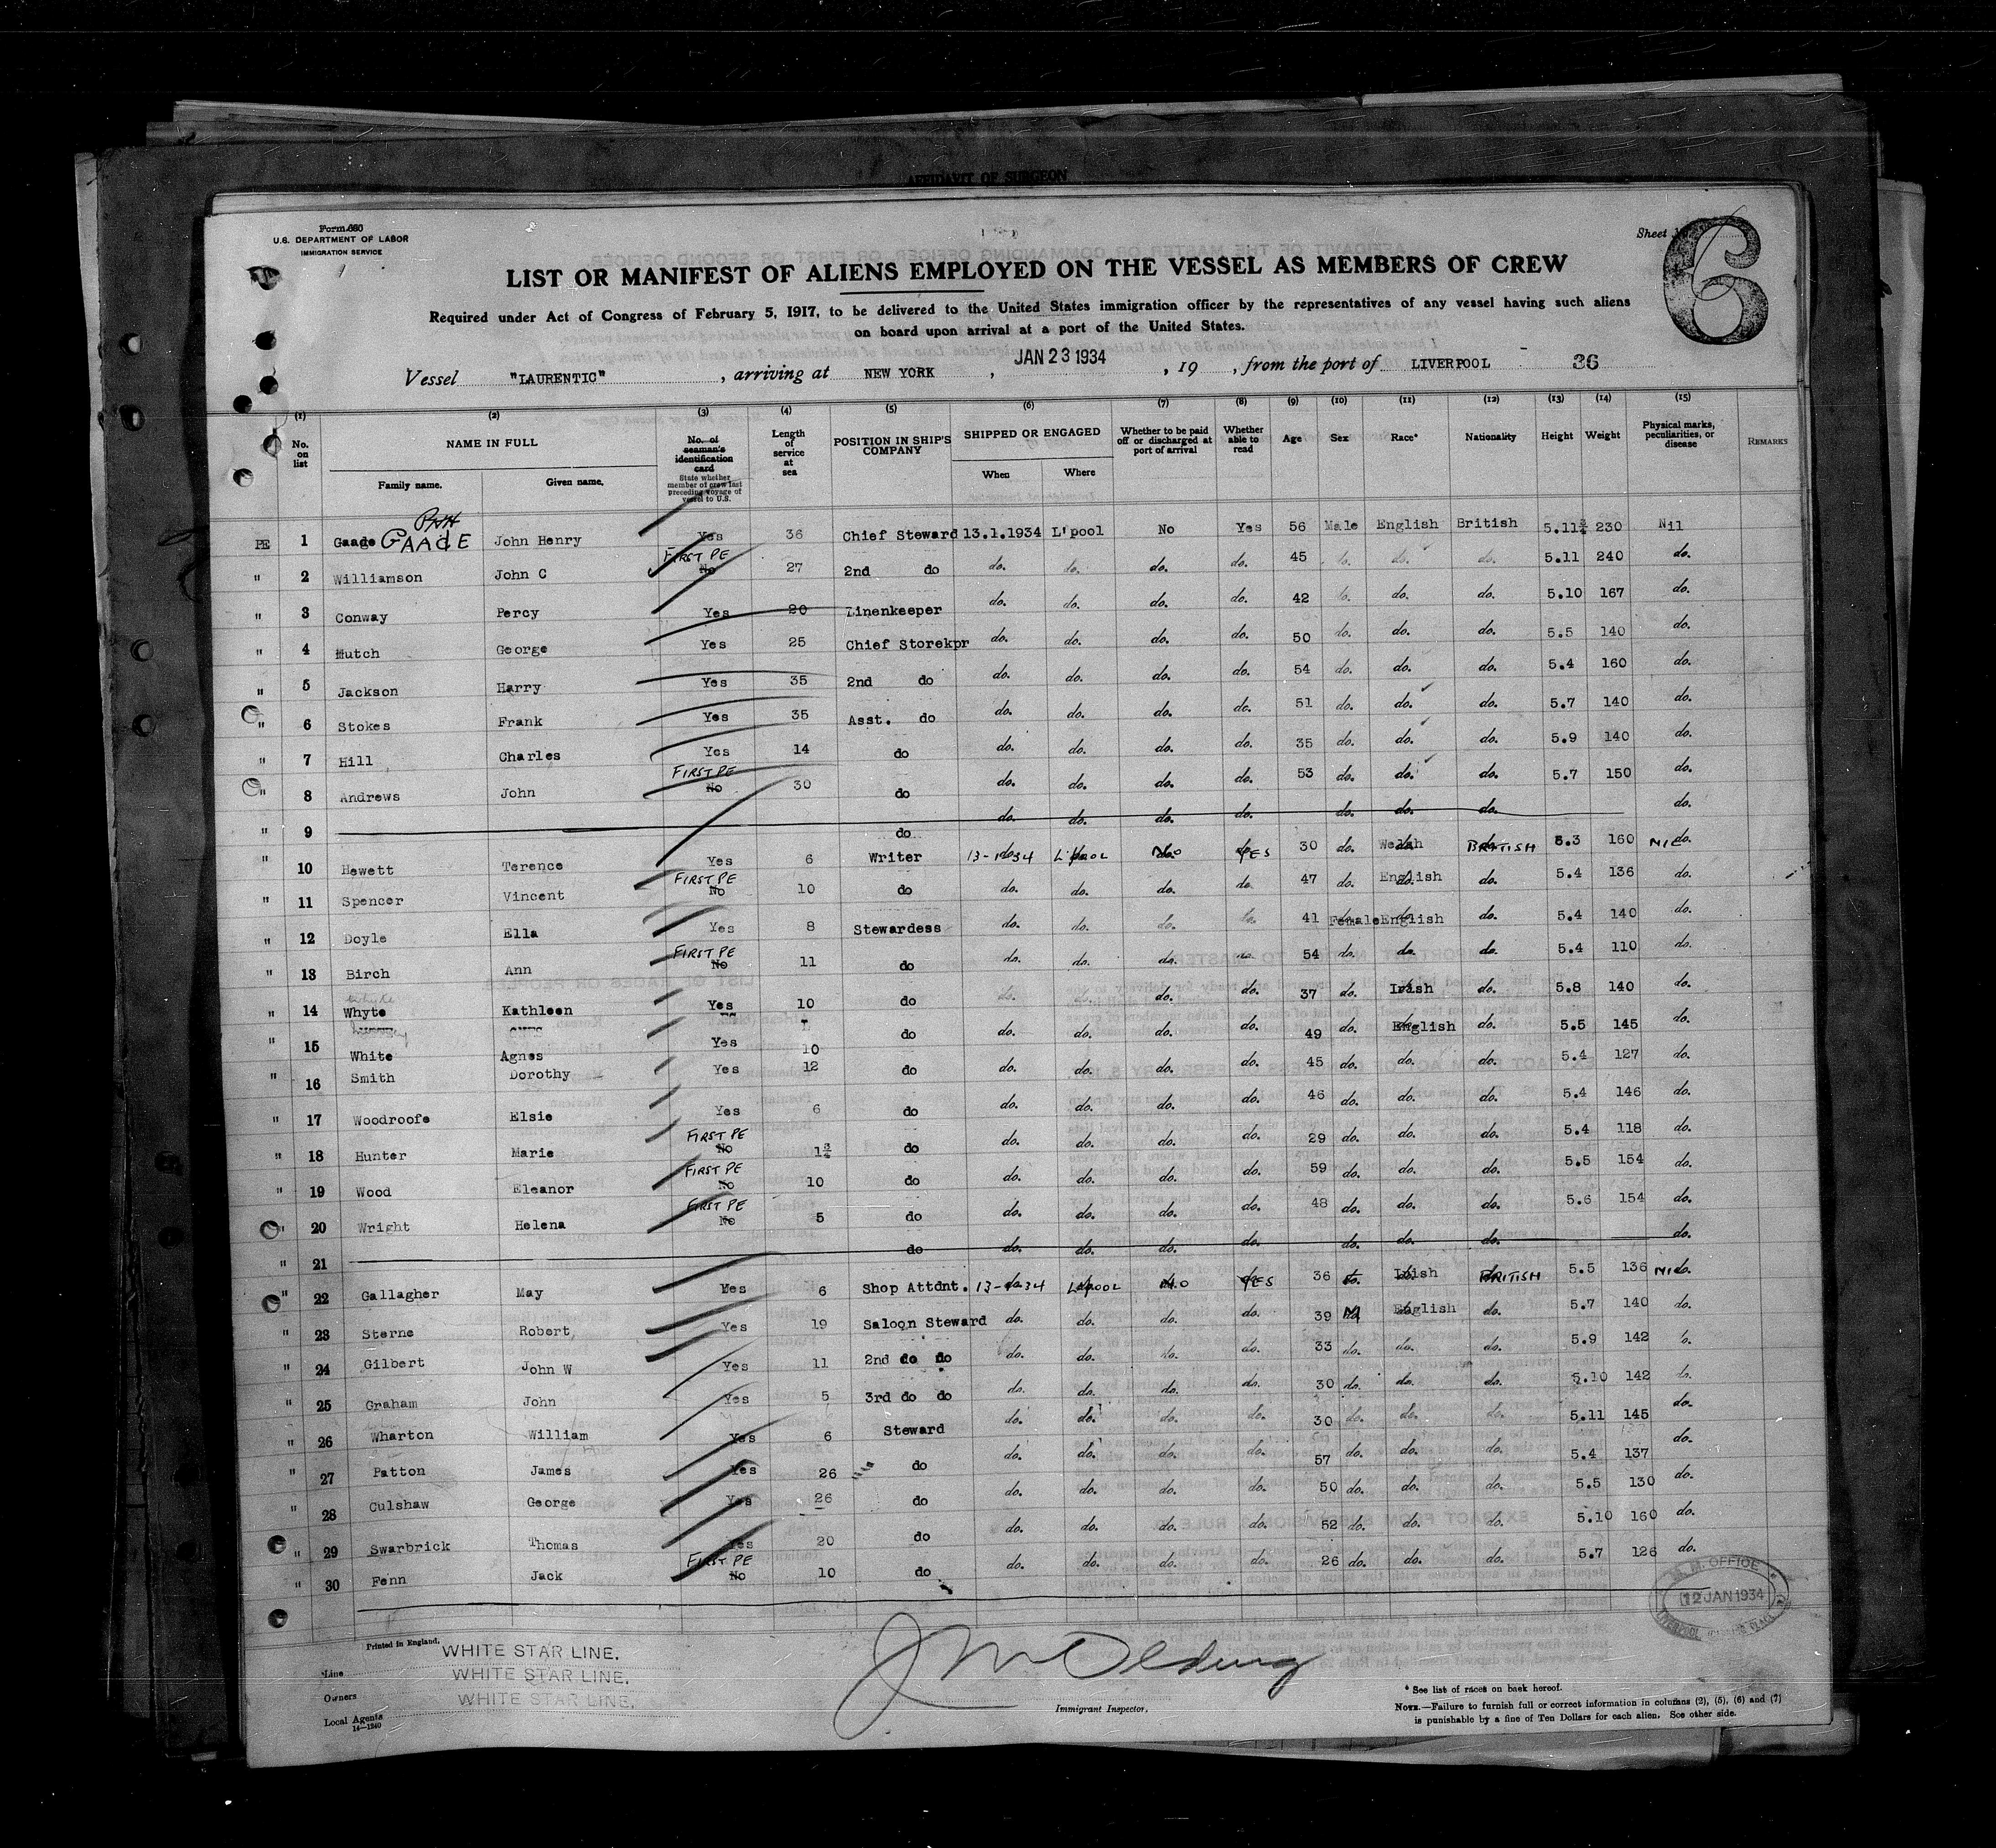 AFFIDAVIT OF SURGEON
Form 680
U.S. DEPARTMENT OF LABOR
IMMIGRATION SERVICE
Sheet
6
LIST OR MANIFEST OF ALIENS EMPLOYED ON THE VESSEL AS MEMBERS OF CREW
Required under Act of Congress of February 5, 1917, to be delivered to the United States immigration officer by the representatives of any vessel having such aliens
on board upon arrival at a port of the United States.
Vessel "LAURENTIC", arriving at NEW YORK, JAN 23 1934, 19 , from the port of LIVERPOOL 36
(1) (2) (3) (4) (5) (6) (7) (8) (9) (10) (11) (12) (13) (14) (15)
No. on list NAME IN FULL Family name. Given name. No. of seaman's identification card State whether member of crew last preceding voyage of vessel to U.S. Length of service at sea POSITION IN SHIP'S COMPANY SHIPPED OR ENGAGED When Where Whether to be paid off or discharged at port of arrival Whether able to read Age Sex Race* Nationality Height Weight Physical marks, peculiarities, or disease REMARKS
PE 1 Gaade GAADE John Henry Yes 36 Chief Steward 13.1.1934 L'pool No Yes 56 Male English British 5.11¾ 230 Nil
" 2 Williamson John C FIRST PE No 27 2nd do do. do. do. do. 45 do. do. do. 5.11 240 do.
" 3 Conway Percy Yes 20 Linenkeeper do. do. do. do. 42 do. do. do. 5.10 167 do.
" 4 Hutch George Yes 25 Chief Storekpr do. do. do. do. 50 do. do. do. 5.5 140 do.
" 5 Jackson Harry Yes 35 2nd do do. do. do. do. 54 do. do. do. 5.4 160 do.
" 6 Stokes Frank Yes 35 Asst. do do. do. do. do. 51 do. do. do. 5.7 140 do.
" 7 Hill Charles Yes 14 do do. do. do. do. 35 do. do. do. 5.9 140 do.
" 8 Andrews John FIRST PE No 30 do do. do. do. do. 53 do. do. do. 5.7 150 do.
" 9 do do. do. do. do. do. do. do. do.
" 10 Hewett Terence Yes 6 Writer 13-1-34 L'POOL NO YES 30 do. Welsh BRITISH 5.3 160 NIL
" 11 Spencer Vincent FIRST PE No 10 do do. do. do. do. 47 do. English do. 5.4 136 do.
" 12 Doyle Ella Yes 8 Stewardess do. do. do. do. 41 Female English do. 5.4 140 do.
" 13 Birch Ann FIRST PE No 11 do do. do. do. do. 54 do. do. do. 5.4 110 do.
" 14 Whyte Kathleen Yes 10 do do. do. do. do. 37 do. Irish do. 5.8 140 do.
" 15 White Agnes Yes 10 do do. do. do. do. 49 do. English do. 5.5 145 do.
" 16 Smith Dorothy Yes 12 do do. do. do. do. 45 do. do. do. 5.4 127 do.
" 17 Woodroofe Elsie Yes 6 do do. do. do. do. 46 do. do. do. 5.4 146 do.
" 18 Hunter Marie FIRST PE No 1¾ do do. do. do. do. 29 do. do. do. 5.4 118 do.
" 19 Wood Eleanor FIRST PE No 10 do do. do. do. do. 59 do. do. do. 5.5 154 do.
" 20 Wright Helena FIRST PE No 5 do do. do. do. do. 48 do. do. do. 5.6 154 do.
" 21 do do. do. do. do. do. do. do. do.
" 22 Gallagher May Yes 6 Shop Attdnt. 13-1-34 L'POOL NO YES 36 do. Irish BRITISH 5.5 136 NIL
" 23 Sterne Robert Yes 19 Saloon Steward do. do. do. do. 39 M English do. 5.7 140 do.
" 24 Gilbert John W Yes 11 2nd do do do. do. do. do. 33 do. do. do. 5.9 142 do.
" 25 Graham John Yes 5 3rd do do do. do. do. do. 30 do. do. do. 5.10 142 do.
" 26 Wharton William Yes 6 Steward do. do. do. do. 30 do. do. do. 5.11 145 do.
" 27 Patton James Yes 26 do do. do. do. do. 57 do. do. do. 5.4 137 do.
" 28 Culshaw George Yes 26 do do. do. do. do. 50 do. do. do. 5.5 130 do.
" 29 Swarbrick Thomas Yes 20 do do. do. do. do. 52 do. do. do. 5.10 160 do.
" 30 Fenn Jack FIRST PE No 10 do do. do. do. do. 26 do. do. do. 5.7 126 do.
M. M. OFFICE
12 JAN 1934
LIVERPOOL
Printed in England.
Line WHITE STAR LINE.
Owners WHITE STAR LINE.
Local Agents WHITE STAR LINE.
14—1240
Immigrant Inspector.
* See list of races on back hereof.
NOTE.—Failure to furnish full or correct information in columns (2), (5), (6) and (7)
is punishable by a fine of Ten Dollars for each alien. See other side.